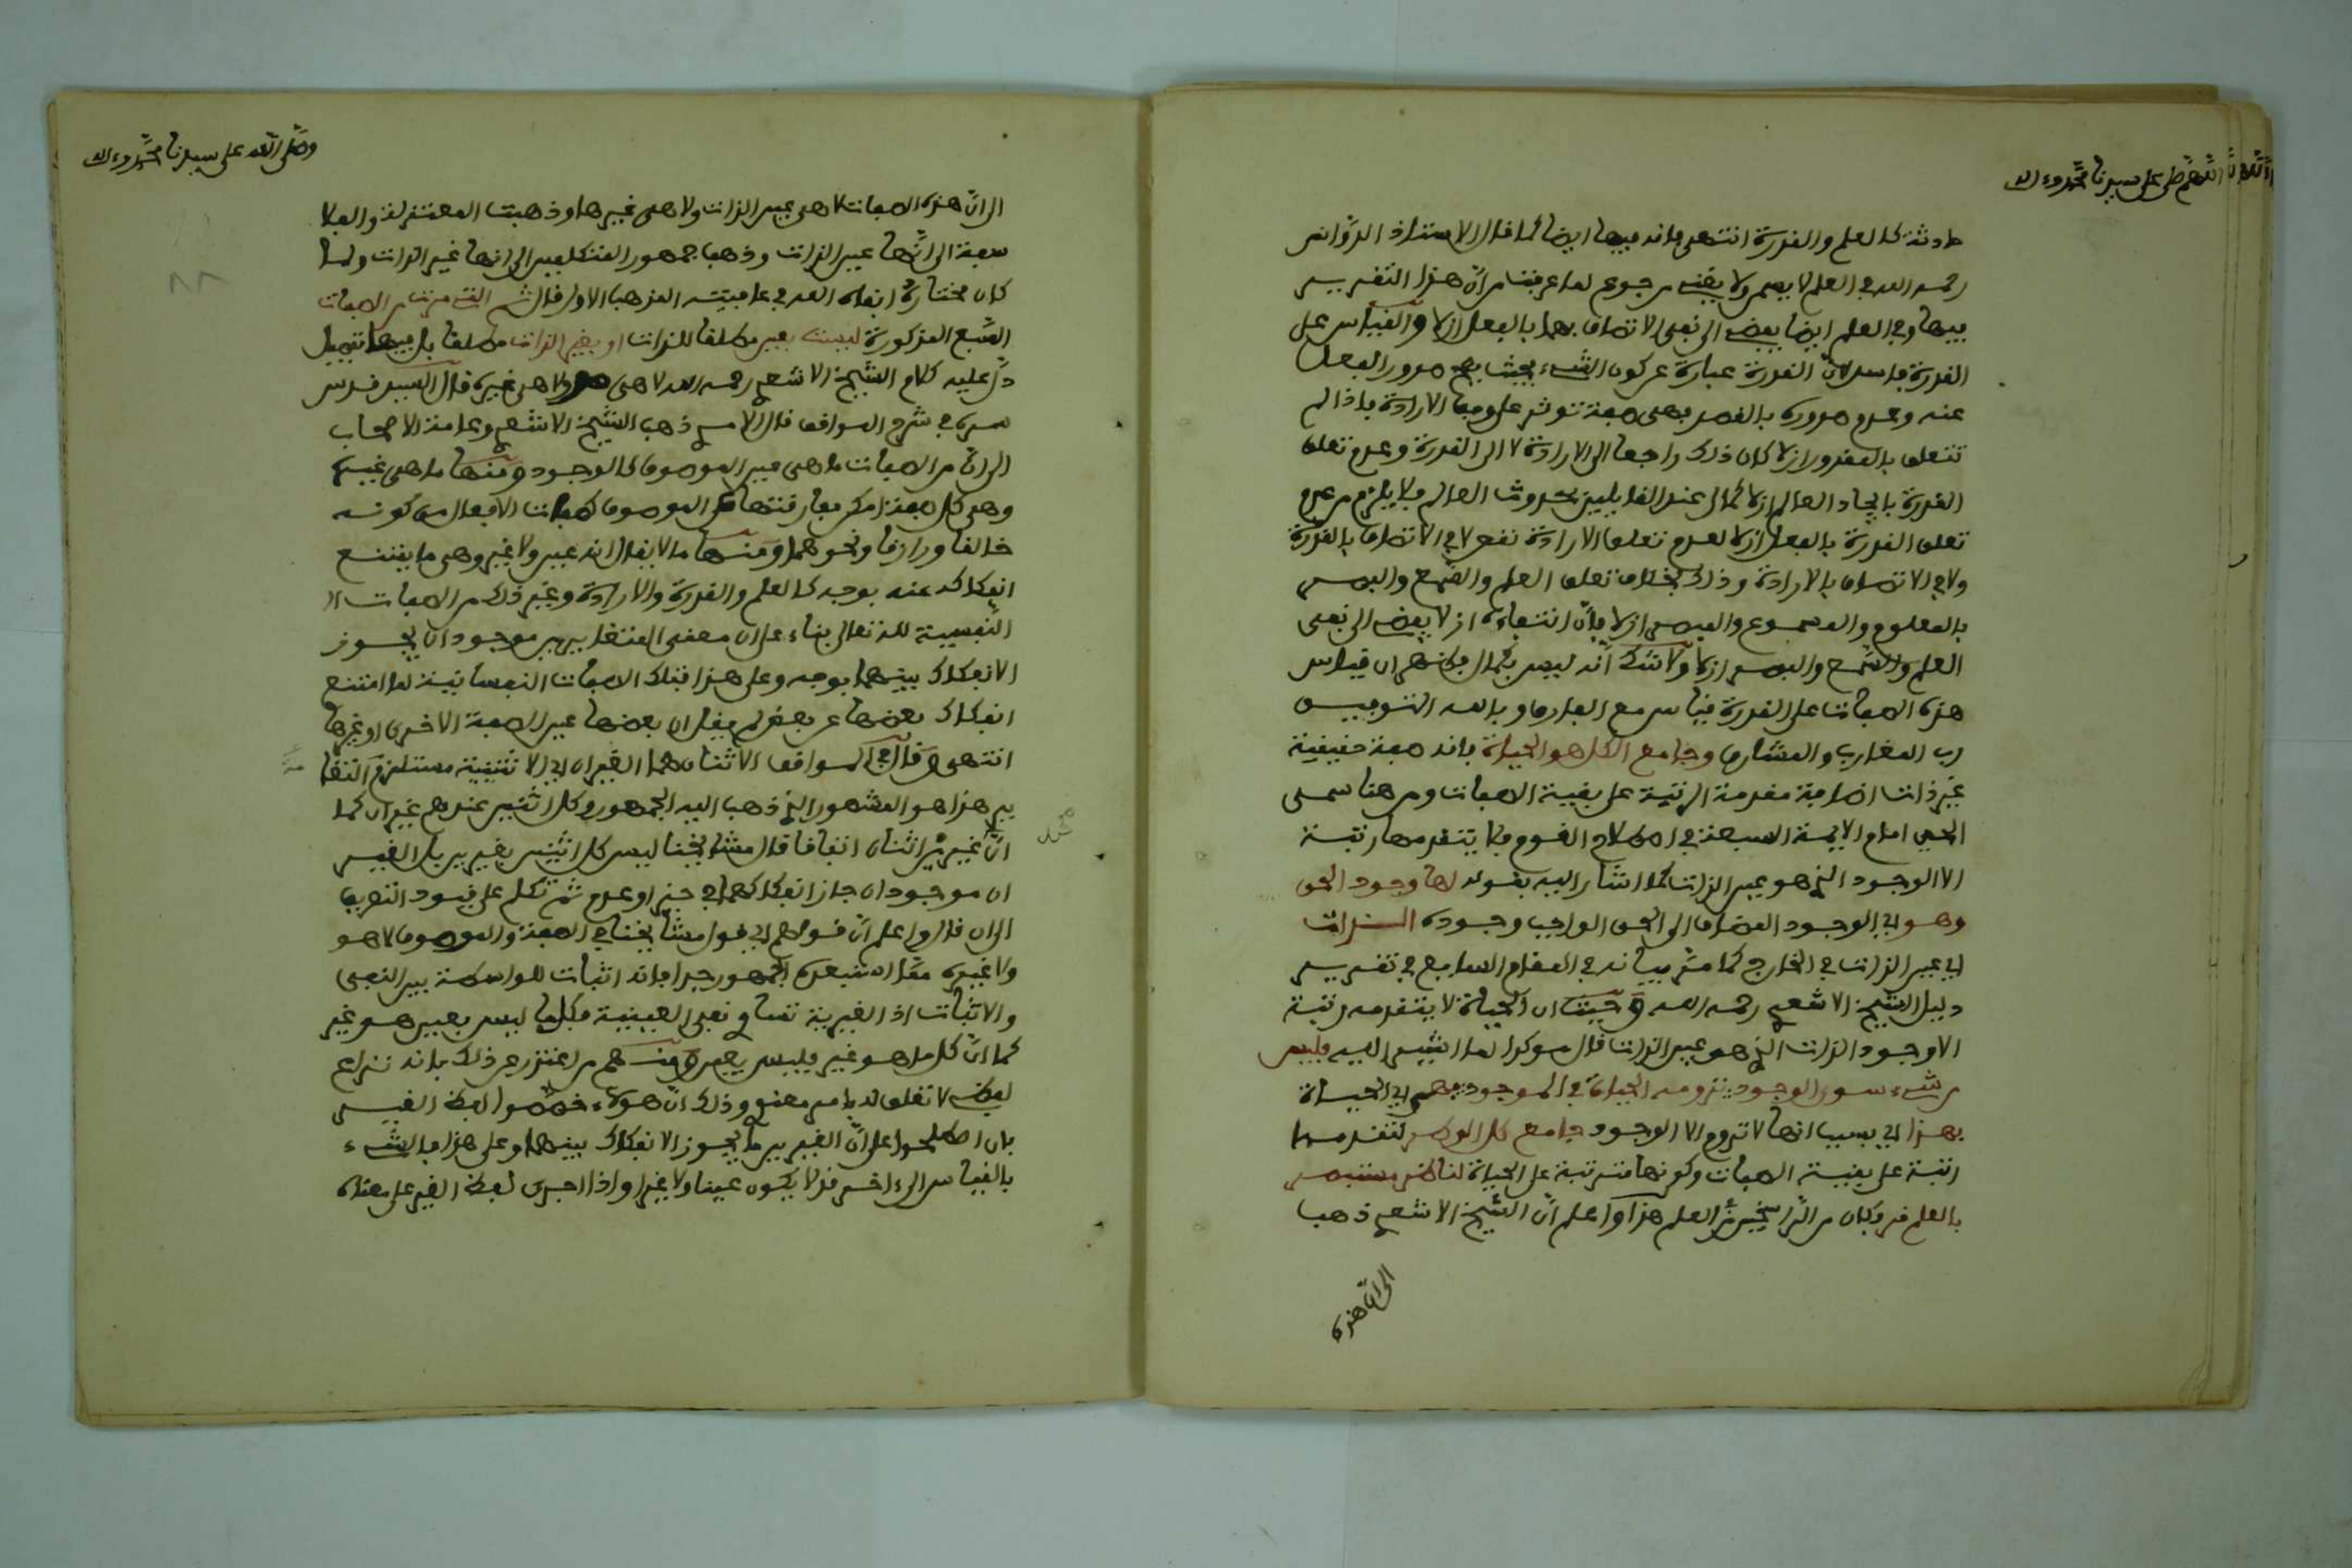 اللهم صل على سيدنا محمد وءاله
حادثة كالعلم والقدرة انتهى فانه فيها ايضا كما قال الاستاذ الدوّانى
رحمه الله فى العلم لا يصح ولا يقضى رجوع لما عرفت من انّ هذا التقرير
فيها وفى العلم ايضا يفضى الى نفى الاتصاف بهما بالفعل ازلا والقياس على
القدرة فاسد لانّ القدرة عبارة عن كون الشىء بحيث يصح صدور الفعل
عنه وعدم صدوره بالقصد فهى صفة تؤثر على وفق الارادة فاذا لم
تتعلق بالمقدور ازلا كان ذلك راجعا الى الارادة لا الى القدرة وعدم تعلق
القدرة بايجاد العالم ازلا كمال عند القايلين بحدوث العالم فلا يلزم من عدم
تعلق القدرة بالفعل ازلا لعدم تعلق الارادة نقص لا فى الاتصاف بالقدرة
ولا فى الاتصاف بالارادة وذلك بخلاف تعلق العلم والسّمع والبصر
بالمعلوم والمسموع والمبصر ازلا فانّ انتفاءه ازلا يفضى الى نفى
العلم والسّمع والبصر ازلا ولا شك انّه ليس بكمال فظهر ان قياس
هذه الصفات على القدرة قياس مع الفارق وبالله التوفيق
رب المغارب والمشارق وجامع الكل هو الحياة فانه صفة حقيقية
غير ذات اضافة مقدمة الرتبة على بقية الصفات ومن هنا سمى
الحى امام الايمة السبعة فى اصطلاح القوم فلا يتقدمها رتبة
الا الوجود الذى هو عين الذات كما اشار اليه بقوله لها وجود الحق
وهو اى الوجود المضاف الى الحق الواجب وجوده الذات
اى عين الذات فى الخارج كما مرّ بيانه فى المقام السابع فى تقرير
دليل الشيخ الاشعرى رحمه الله وحيث ان الحياة لا يتقدمه رتبة
الا وجود الذات الذى هو عين الذات قال موكدا لما اشير اليه فليس
من شىء سوى الوجود تزومه الحياة فى الموجود فهى اى الحياة
بهذا اى بسبب انها لا تروم الا الوجود جامع كل الوصف لتقدمها
رتبة على بقية الصفات وكونها مترتبة على الحياة لناظر مستبصر
بالعلم قد وكان من الرّاسخين فى العلم هذا واعلم انّ الشيخ الاشعرى ذهب
الى انّ هذه
وصلى الله على سيدنا محمد وءاله
الى انّ هذه الصفات لا هى عين الذات ولا هى غيرها وذهبت المعتزلة والفلا
سفة الى انّها عين الذات وذهب جمهور المتكلمين الى انها غير الذات ولما
كان مختاره ابقاه الله فى عافيته المذهب الاول قال ثم التى مرت من الصفات
السّبع المذكورة ليست بعين مطلقا للذات او بغير الذات مطلقا بل فيها تفصيل
دلّ عليه كلام الشيخ الاشعرى رحمه الله لا هى هو ولا هى غيره قال السيد قدس
سره فى شرح المواقف قال الآمدى ذهب الشيخ الاشعرى وعامة الاصحاب
الى انّ من الصفات ما هى عين الموصوف كالوجود ومنها ما هى غيره
وهى كل صفة امكن مفارقتها عن الموصوف كصفات الافعال من كونه
خالقا ورازقا ونحوهما ومنها ما لا يقال انه عين ولا غير وهى ما يمتنع
انفكاكه عنه بوجه كالعلم والقدرة والارادة وغير ذلك من الصفات
النفسية لله تعالى بناء على ان معنى المتغايرين موجودان يجوز
الانفكاك بينهما بوجه وعلى هذا فتلك الصفات النفسانية لما امتنع
انفكاك بعضها عن بعض لم يقل ان بعضها عين الصفة الاخرى او غيرها
انتهى وقال فى المواقف الاثنان هما الغيران اى الاثنينية مستلزم التغا
ير هذا هو المشهور الذى ذهب اليه الجمهور وكل اثنين عندهم غيران كما
انّ غيرين اثنان اتفاقا قال مشايخنا ليس كل اثنين بغيرين بل الغير
ان موجودان جاز انفكاكهما فى حيز او عدم ثم تكلم على قيود التعريف
الى ان قال واعلم انّ قولهم اى قول مشايخنا فى الصفة والموصوف لا هو
ولا غيره ممّا استبعده الجمهور جدا فانه اثبات للواسطة بين النفى
والاثبات اذ الغيرية تساوى نفى العينية فكلما ليس بعين هو غير
كما انّ كل ما هو غير فليس بعين ومنهم من اعتذر عن ذلك بانه نزاع
لفظى لا تعلق له بامر معنوى وذلك انّ هؤلاء خصّصوا لفظ الغير
بان اصطلحوا على انّ الغيرين ما يجوز الانفكاك بينهما وعلى هذا فالشىء
بالقياس الى ءاخر قد لا يكون عينا ولا غيرا واذا اجرى لفظ الغير على معناه